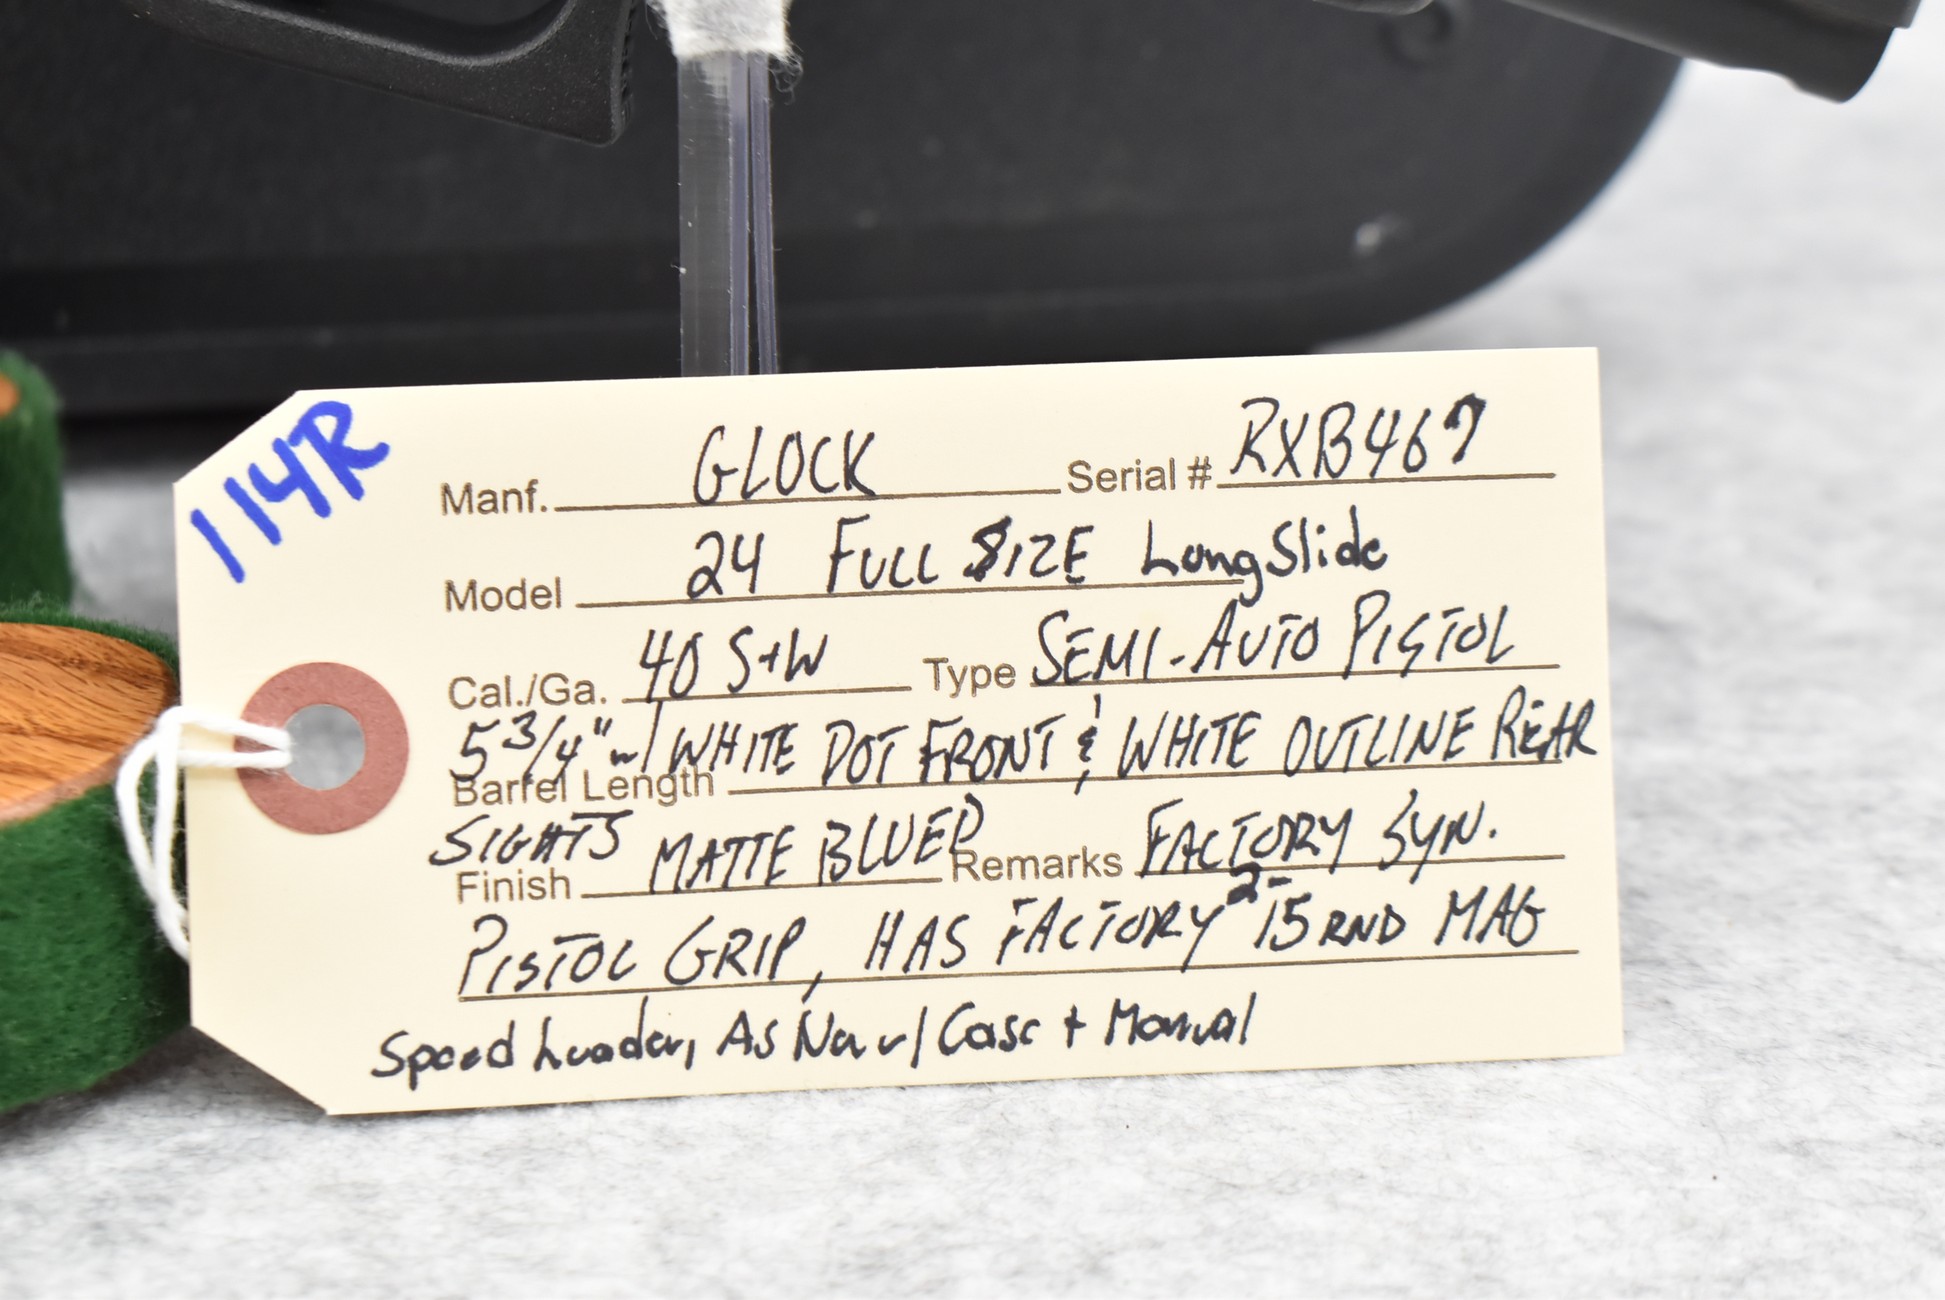 114R
Manf. GLOCK Serial # RXB467
Model 24 FULL SIZE LongSlide
Cal./Ga. 40 S+W Type SEMI-AUTO PISTOL
5 3/4" w/ WHITE DOT FRONT & WHITE OUTLINE REAR
Barrel Length
SIGHTS MATTE BLUED FACTORY SYN.
Finish Remarks
PISTOL GRIP, HAS FACTORY 2- 15 RND MAG
Speed Loader, As New w/ Case + Manual